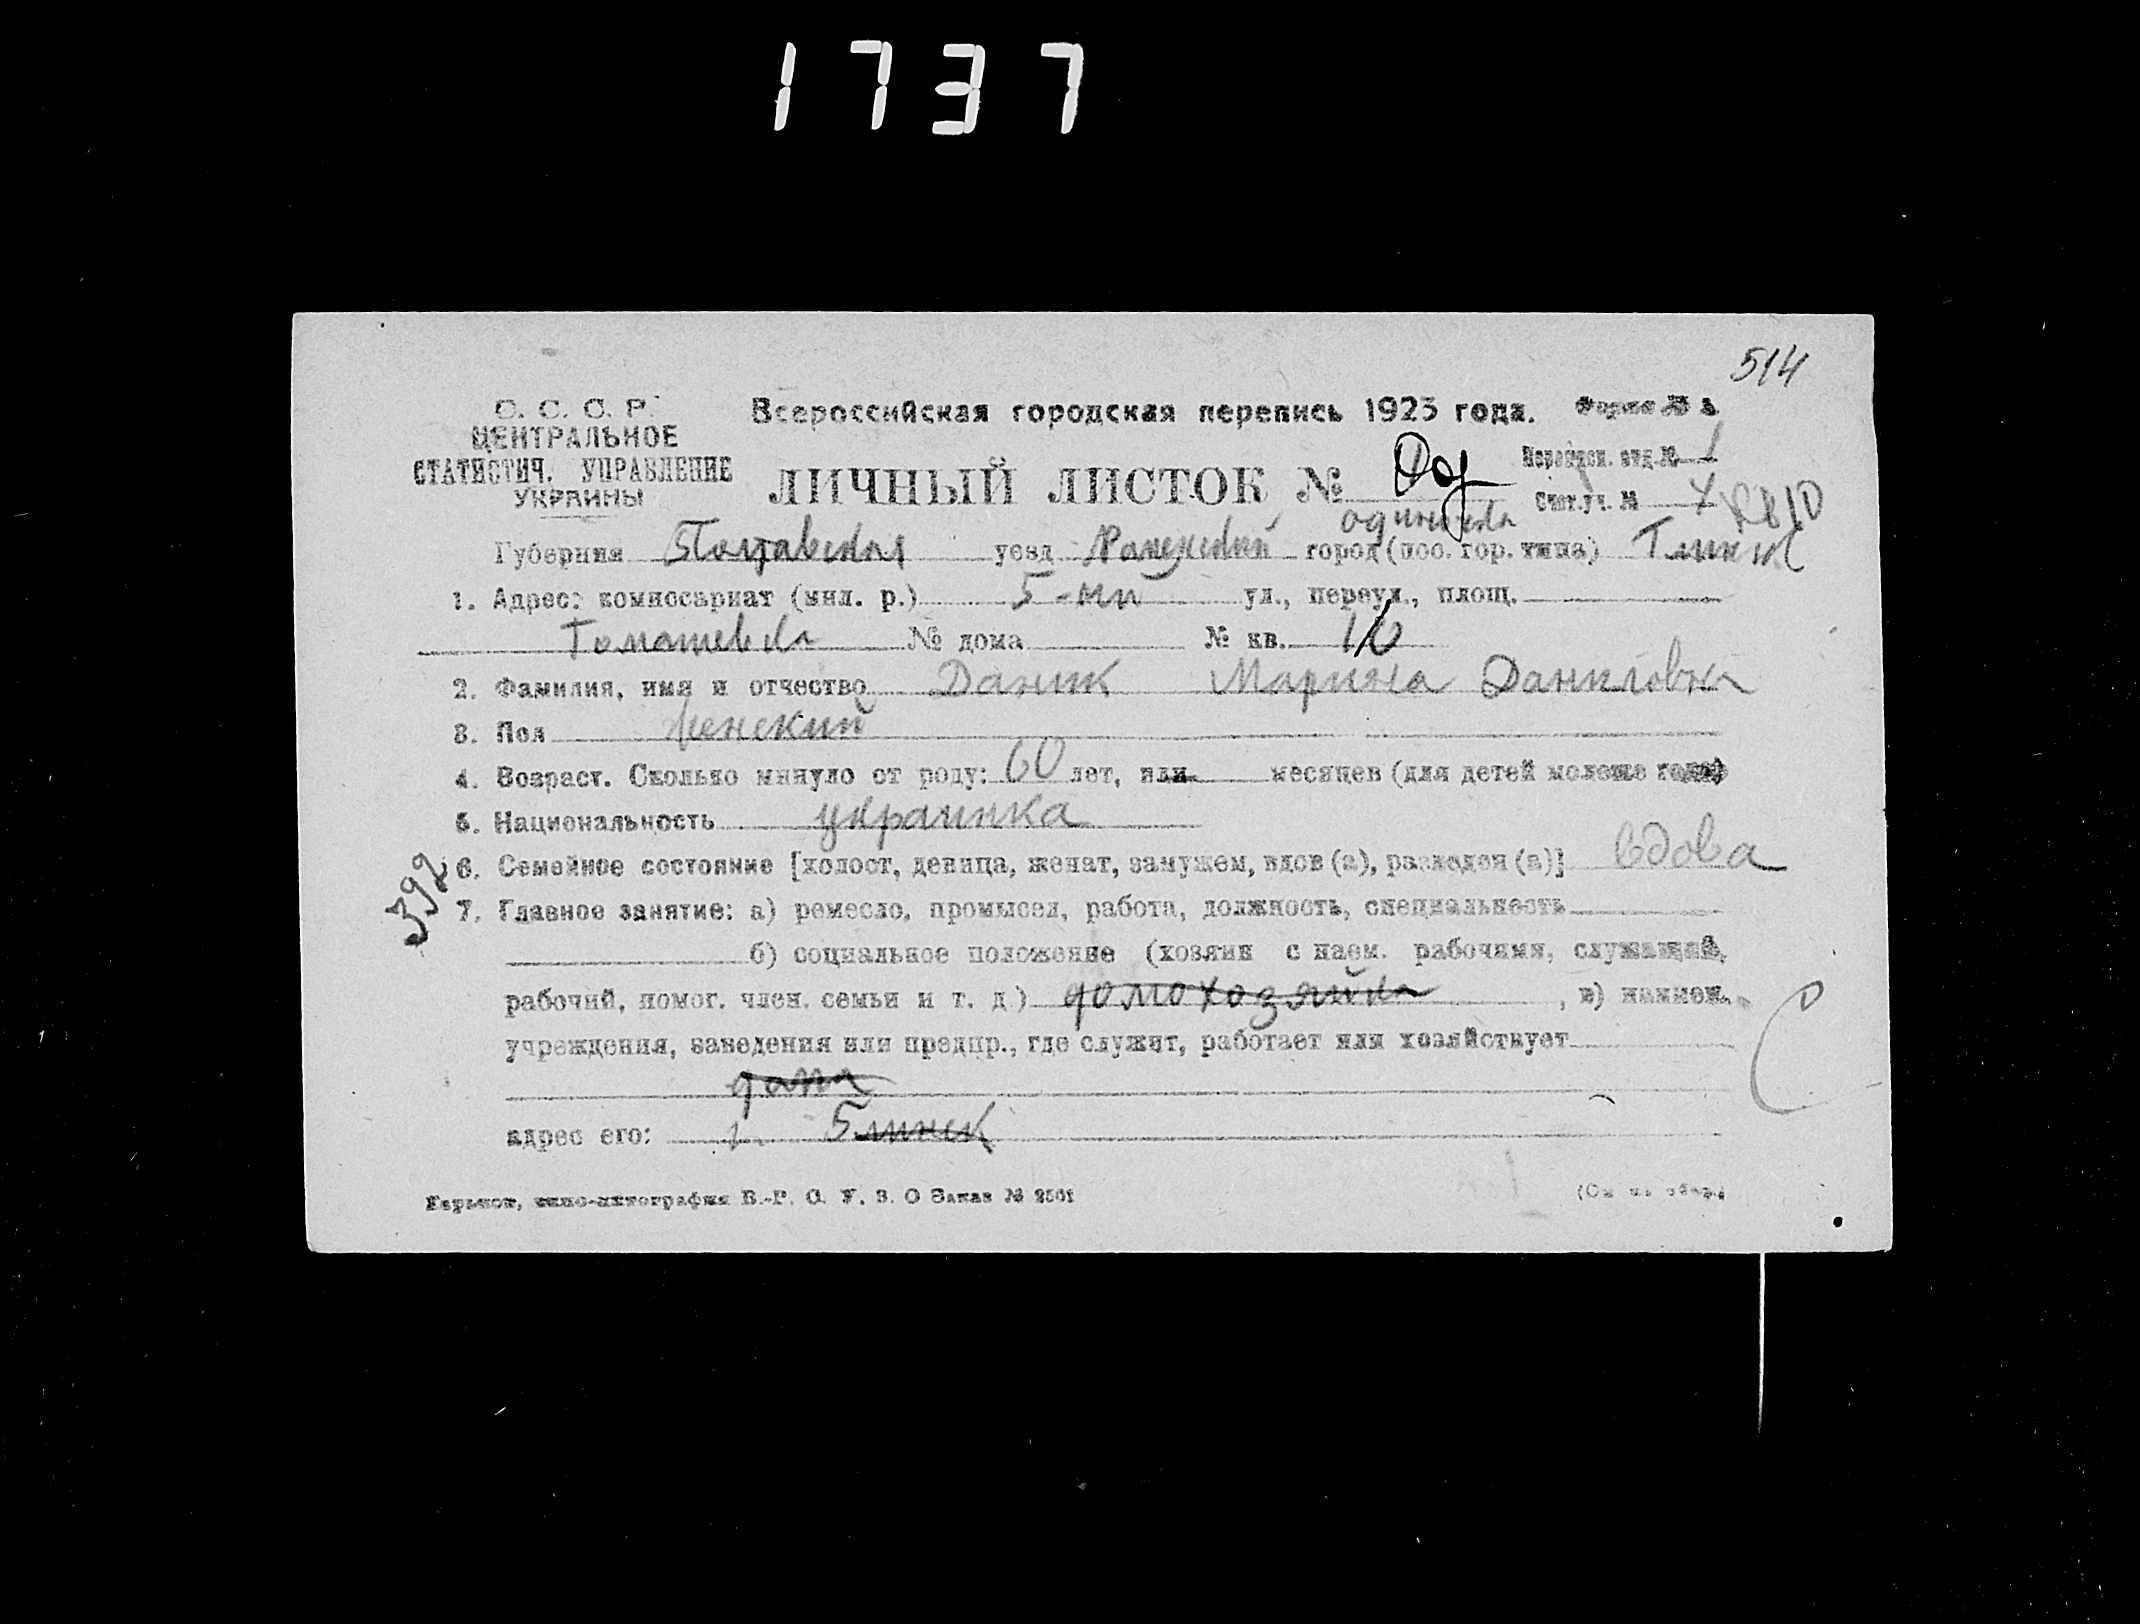 1737
514
С. С. С. Р.
ЦЕНТРАЛЬНОЕ
СТАТИСТИЧ. УПРАВЛЕНИЕ
УКРАИНЫ
Всероссийская городская перепись 1923 года. Форма №
ЛИЧНЫЙ ЛИСТОК №
Переписн. отд. № 1
Счет. уч. №
Губерния Полтавская уезд Роменский город (пос. гор. типа)
1. Адрес: комиссариат (мил. р.) 5-ый ул., переул., площ.
№ дома № кв. 16
2. Фамилия, имя и отчество Даник Марина Даниловна
3. Пол женский
4. Возраст. Сколько минуло от роду: 60 лет, или месяцев (для детей моложе года)
5. Национальность украинка
392
6. Семейное состояние [холост, девица, женат, замужем, вдов (а), разведен (а)] вдова
7. Главное занятие: а) ремесло, промысел, работа, должность, специальность
б) социальное положение (хозяин с наем. рабочими, служащий,
рабочий, помог. член. семьи и т. д.) домохозяйка , в) наимен.
учреждения, заведения или предпр., где служит, работает или хозяйствует
дома
адрес его:
Харьков, типо-литография В.-Р. С. У. В. О Заказ № 2501
(См на обор.)